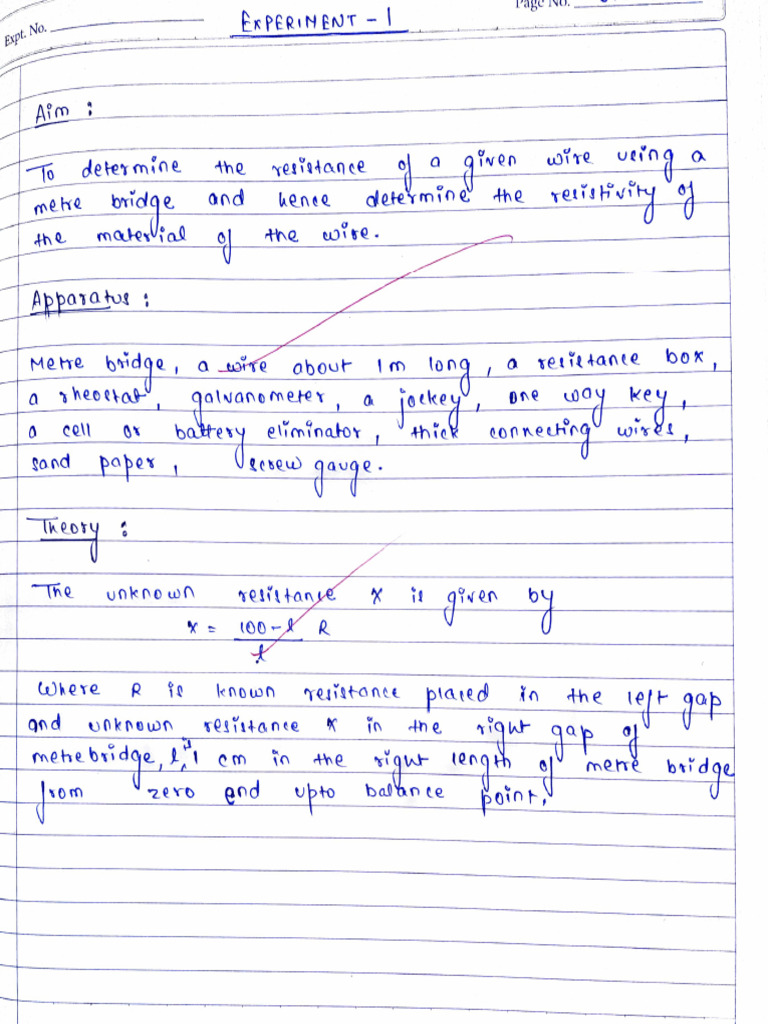 Expt. No.
EXPERIMENT - 1
Page No.
Aim :
To determine the resistance of a given wire using a
metre bridge and hence determine the resistivity of
the material of the wire.
Apparatus :
Metre bridge, a wire about 1m long, a resistance box,
a rheostat, galvanometer, a jockey, one way key,
a cell or battery eliminator, thick connecting wires,
sand paper, screw gauge.
Theory :
The unknown resistance x is given by
x = 100 - l R
l
Where R is known resistance placed in the left gap
and unknown resistance x in the right gap of
metrebridge, l, is 1 cm in the right length of metre bridge
from zero end upto balance point.